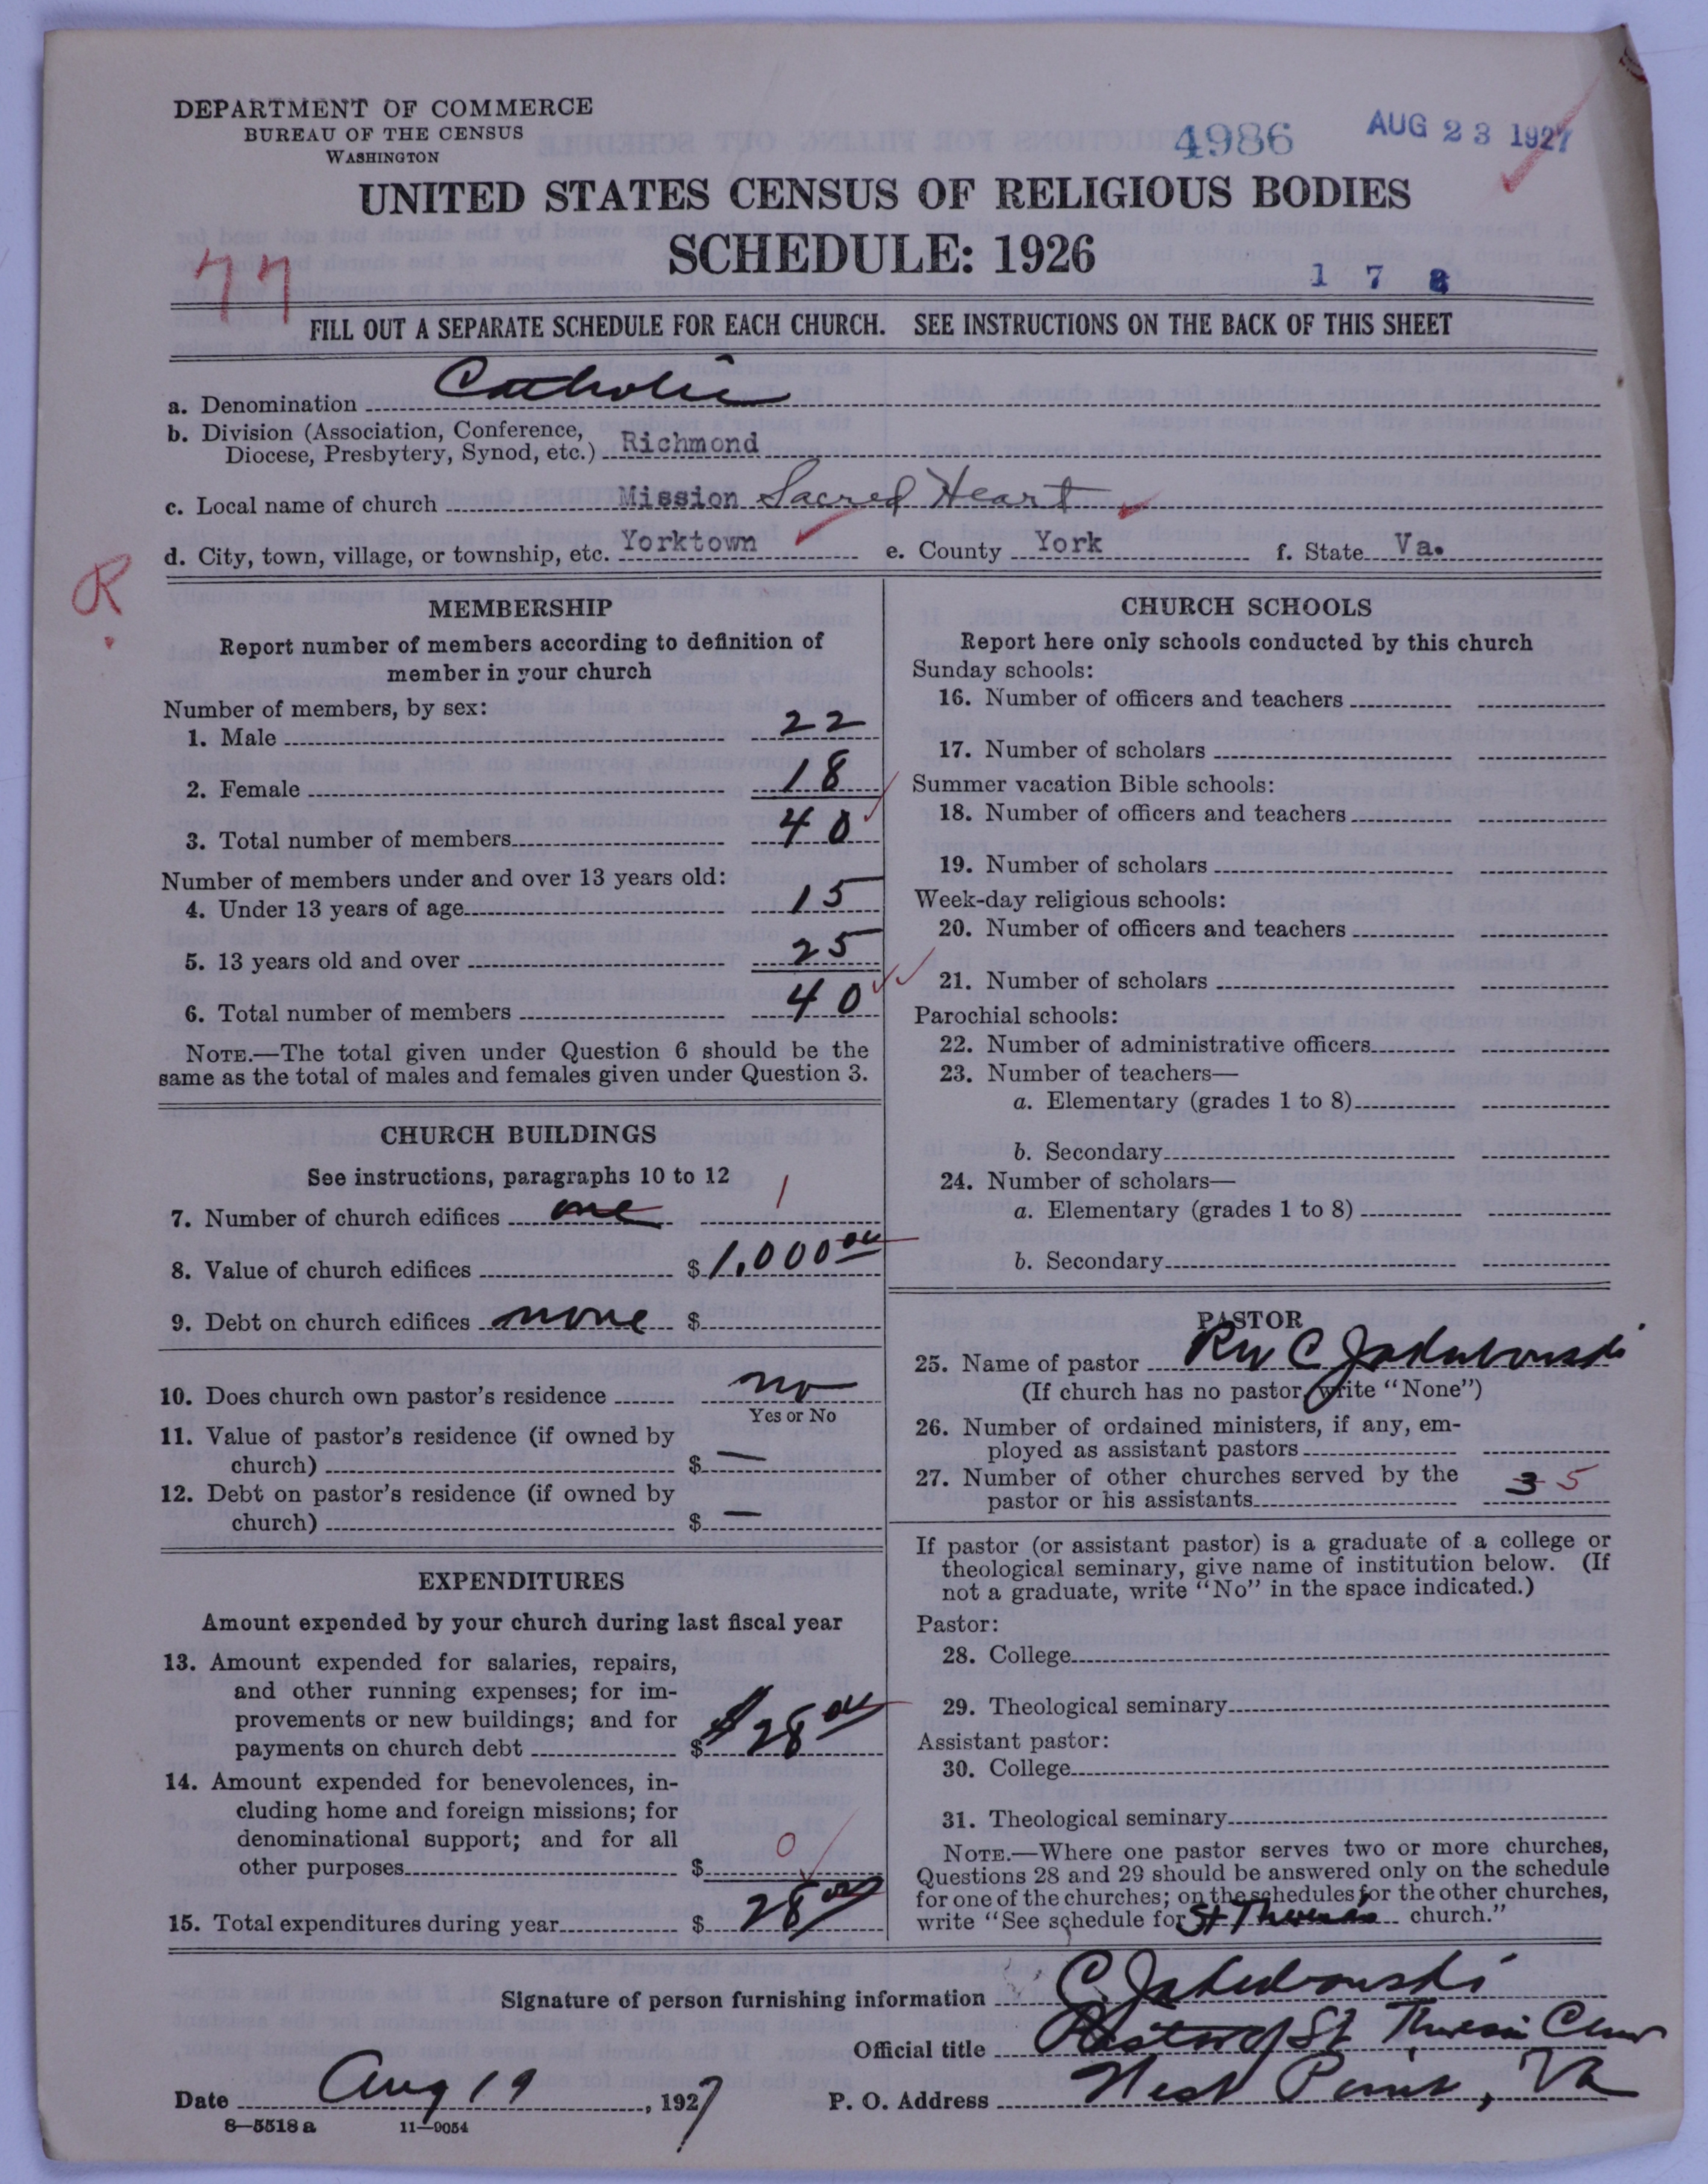 DEPARTMENT OF COMMERCE
BUREAU OF THE CENSUS
WASHINGTON
4986
AUG 23 1927
UNITED STATES CENSUS OF RELIGIOUS BODIES
SCHEDULE: 1926
77
1 7 8
FILL OUT A SEPARATE SCHEDULE FOR EACH CHURCH. SEE INSTRUCTIONS ON THE BACK OF THIS SHEET
a. Denomination Catholic
b. Division (Association, Conference,
Diocese, Presbytery, Synod, etc.) Richmond
c. Local name of church Mission Sacred Heart
d. City, town, village, or township, etc. Yorktown e. County York f. State Va.
R
MEMBERSHIP
Report number of members according to definition of
member in your church
Number of members, by sex:
1. Male 22
2. Female 18
3. Total number of members 40
Number of members under and over 13 years old:
4. Under 13 years of age 15
5. 13 years old and over 25
6. Total number of members 40
NOTE.—The total given under Question 6 should be the
same as the total of males and females given under Question 3.
CHURCH BUILDINGS
See instructions, paragraphs 10 to 12
7. Number of church edifices one 1
8. Value of church edifices $ 1,000 00
9. Debt on church edifices none $
10. Does church own pastor's residence no
Yes or No
11. Value of pastor's residence (if owned by
church) $ —
12. Debt on pastor's residence (if owned by
church) $ —
EXPENDITURES
Amount expended by your church during last fiscal year
13. Amount expended for salaries, repairs,
and other running expenses; for im-
provements or new buildings; and for
payments on church debt $ $28 00
14. Amount expended for benevolences, in-
cluding home and foreign missions; for
denominational support; and for all
other purposes $ 0
15. Total expenditures during year $ 28 00
CHURCH SCHOOLS
Report here only schools conducted by this church
Sunday schools:
16. Number of officers and teachers
17. Number of scholars
Summer vacation Bible schools:
18. Number of officers and teachers
19. Number of scholars
Week-day religious schools:
20. Number of officers and teachers
21. Number of scholars
Parochial schools:
22. Number of administrative officers
23. Number of teachers—
a. Elementary (grades 1 to 8)
b. Secondary
24. Number of scholars—
a. Elementary (grades 1 to 8)
b. Secondary
PASTOR
25. Name of pastor Rev C Jakubowski
(If church has no pastor, write "None")
26. Number of ordained ministers, if any, em-
ployed as assistant pastors
27. Number of other churches served by the
pastor or his assistants 3 5
If pastor (or assistant pastor) is a graduate of a college or
theological seminary, give name of institution below. (If
not a graduate, write "No" in the space indicated.)
Pastor:
28. College
29. Theological seminary
Assistant pastor:
30. College
31. Theological seminary
NOTE.—Where one pastor serves two or more churches,
Questions 28 and 29 should be answered only on the schedule
for one of the churches; on the schedules for the other churches,
write "See schedule for St Theresa church."
Signature of person furnishing information C Jakubowski
Official title Pastor of St Theresa
P. O. Address West Point, Va
Date Aug 19, 1927
8—5518 a 11—9054